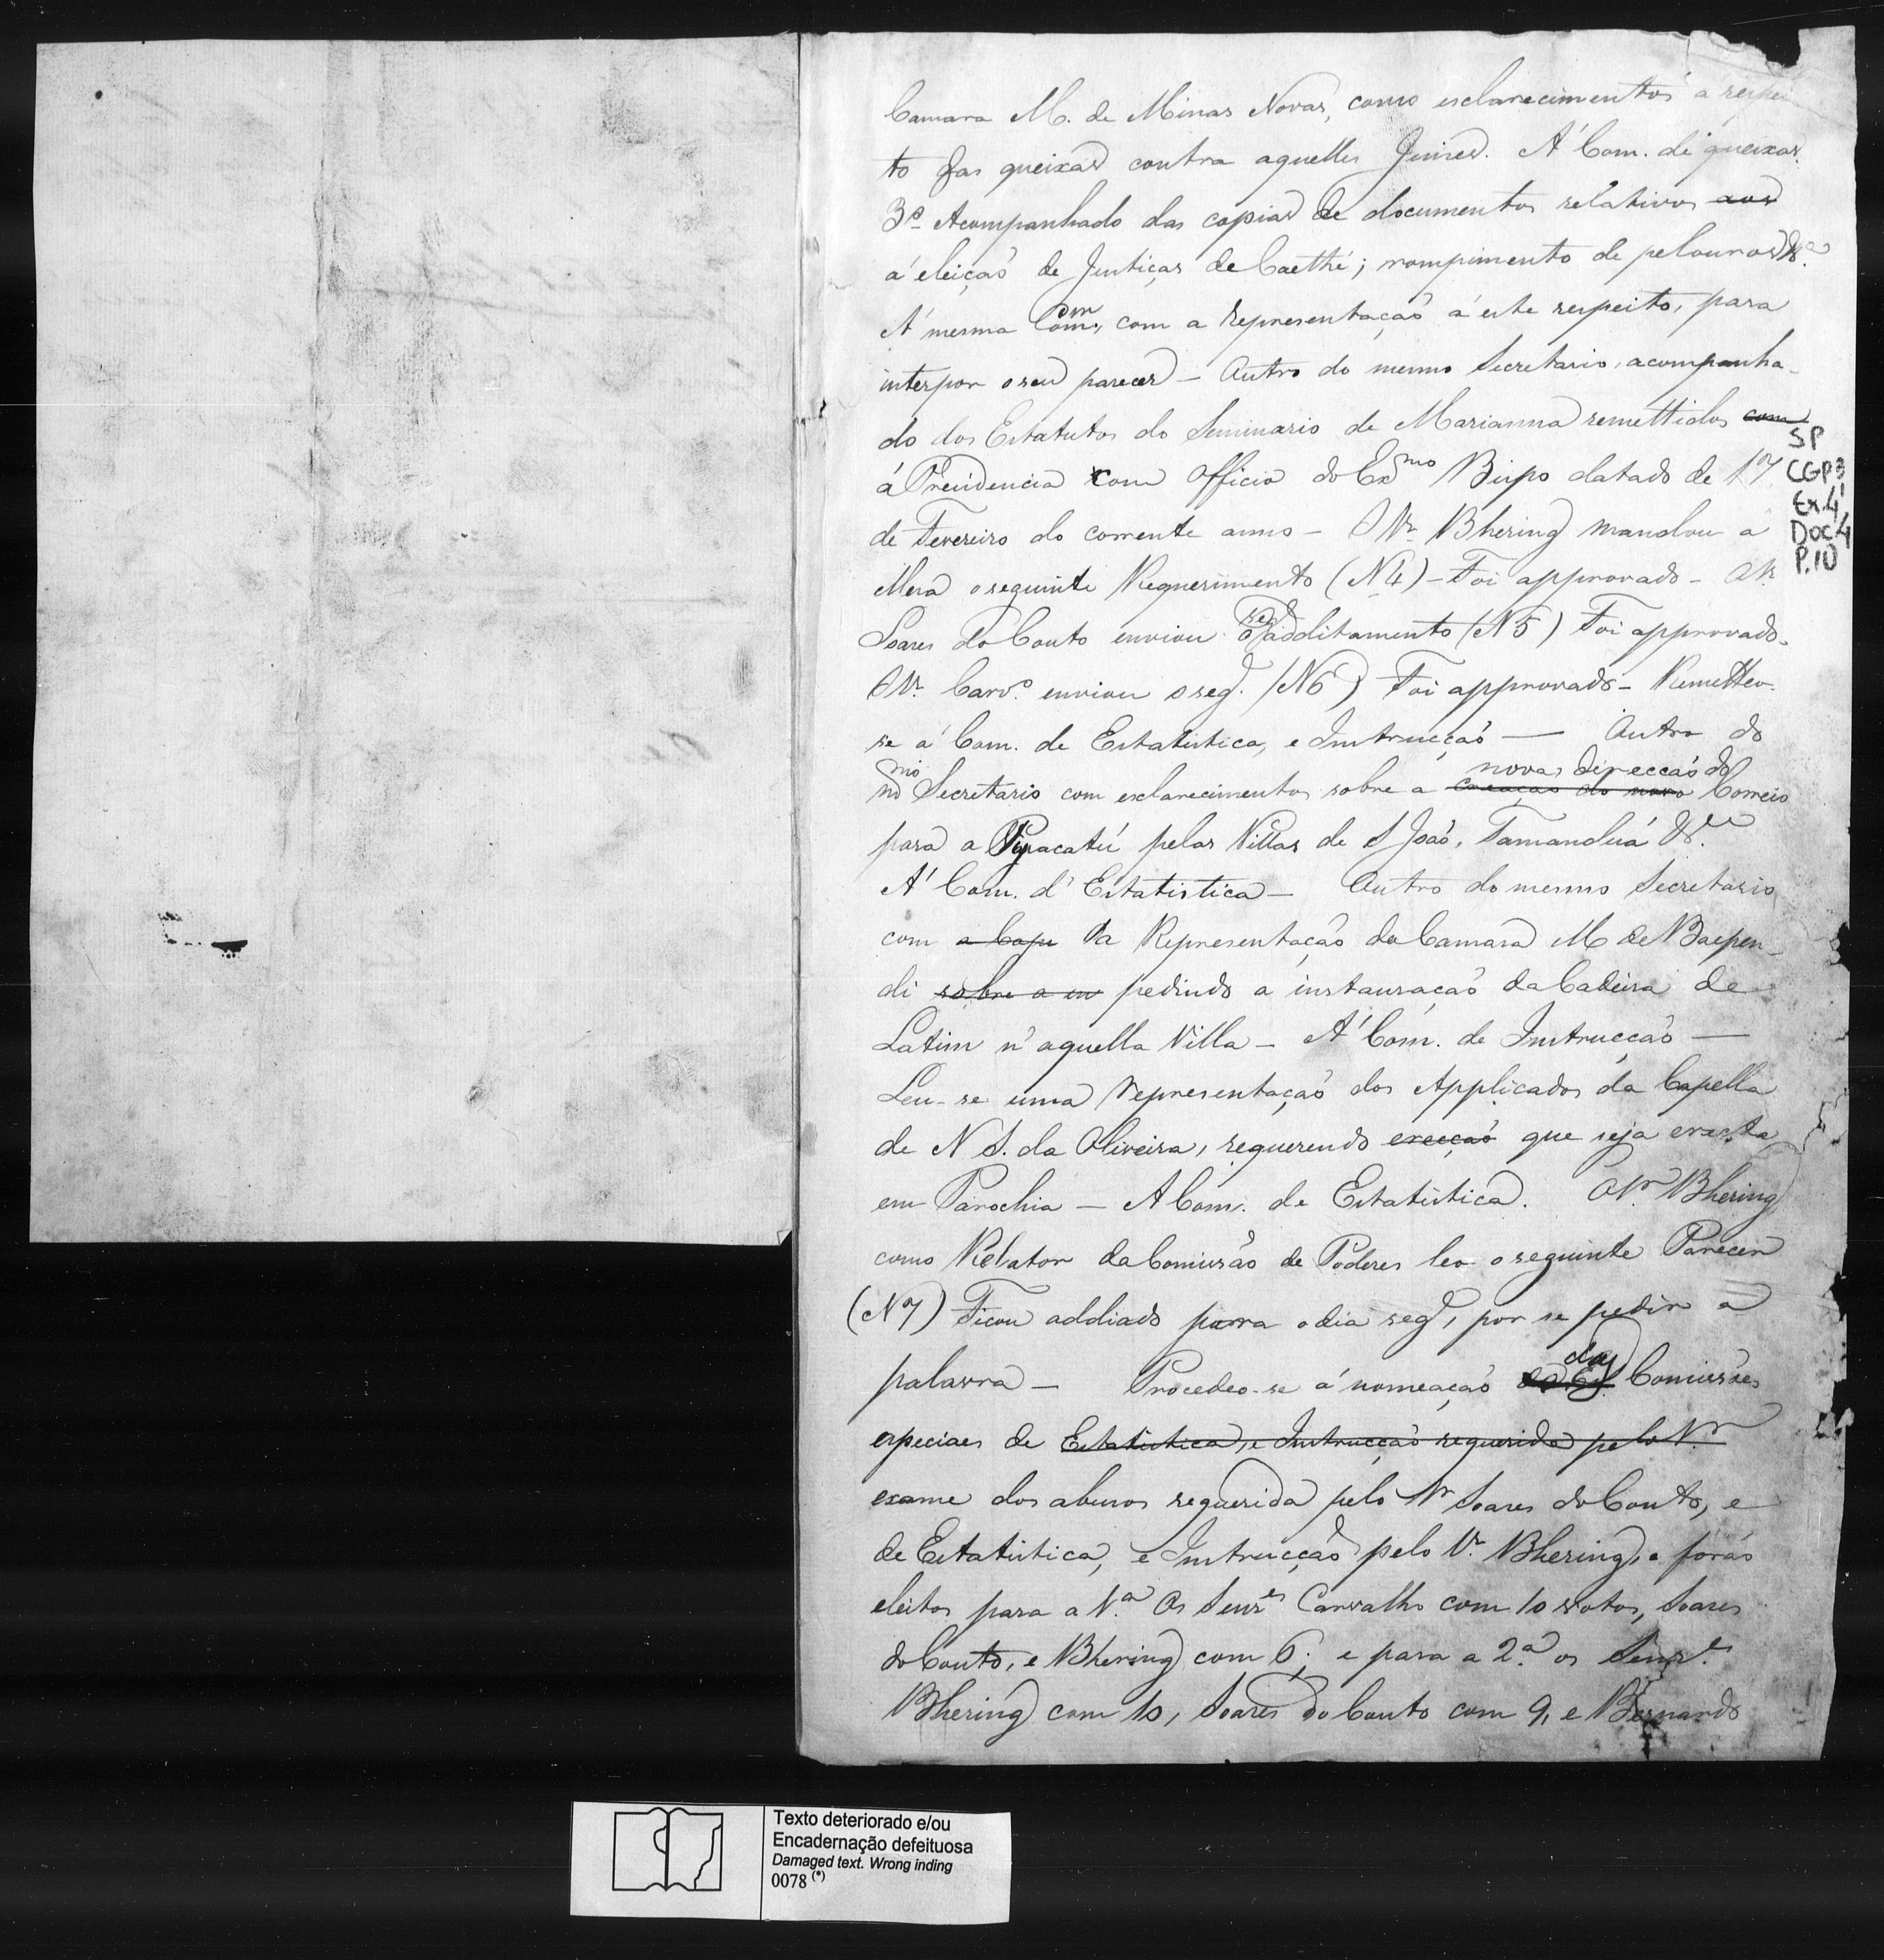 Camara M. de Minas Novas, como esclarecimentos a respei
to das queixas contra aquelles Juises. A' Com. de queixas.
3º Acompanhado das copias de documentos relativos aos
á eleiçaõ de Justiças de Caethé; rompimento de pelouros &ª
A' mesma Com. com a representaçaõ á este respeito, para
interpor o seu parecer - Outro do mesmo Secretario, acompanha-
do dos Estatutos do Seminario de Marianna remettidos com
á Presidencia com Officio do Exmo Bispo datado de 17
de Fevereiro do corrente anno - O Sr. Bhering mandou á
Mesa o seguinte Requerimento (N4) - Foi approvado - O Sr.
Soares do Couto enviou o seg. additamento (N5) Foi approvado.
O Sr. Carvº enviou o seg. (N6) Foi approvado - Remetteo-
se á Com. de Estatistica, e Instrucçaõ — Outro do
mmo Secretario com esclarecimentos sobre a creaçaõ do novo nova direcçaõ do Correio
para a Paracatú pelas Villas de S João, Tamanduá &.
A' Com. d'Estatistica - Outro do mesmo Secretario
com a Copi da Representaçaõ da Camara M de Baepen
di sobre a in pedindo a instauraçaõ da Cadeira de
Latim n'aquella Villa - A' Com. de Instrucçaõ —
Leu-se uma representaçaõ dos Applicados da Capella
de N S. da Oliveira, requerendo erecçaõ que seja erecta
em Parochia - A Com. de Estatistica. O Sr. Bhering
como Relator da Comissaõ de Poderes leo o seguinte Parecer
(N7) Ficou addiado para o dia seg., por se pedir a
palavra - Procedeo-se á nomeaçaõ das Comissões
especiaes de Estatistica, e Instrucçaõ requerida pelo Sr.
exame dos abusos requerida pelo Sr Soares do Couto, e
de Estatistica, e Instrucçaõ pelo Sr. Bhering, e foraõ
eleitos para a 1.ª Os Senres Carvalho com 10 votos, Soares
do Couto, e Bhering com 6; e para a 2.ª os Senres
Bhering com 10, Soares do Couto com 9, e Bernardo
SP
CGP3
Ex.4
Doc4
P.10
Texto deteriorado e/ou
Encadernação defeituosa
Damaged text. Wrong inding
0078 (*)